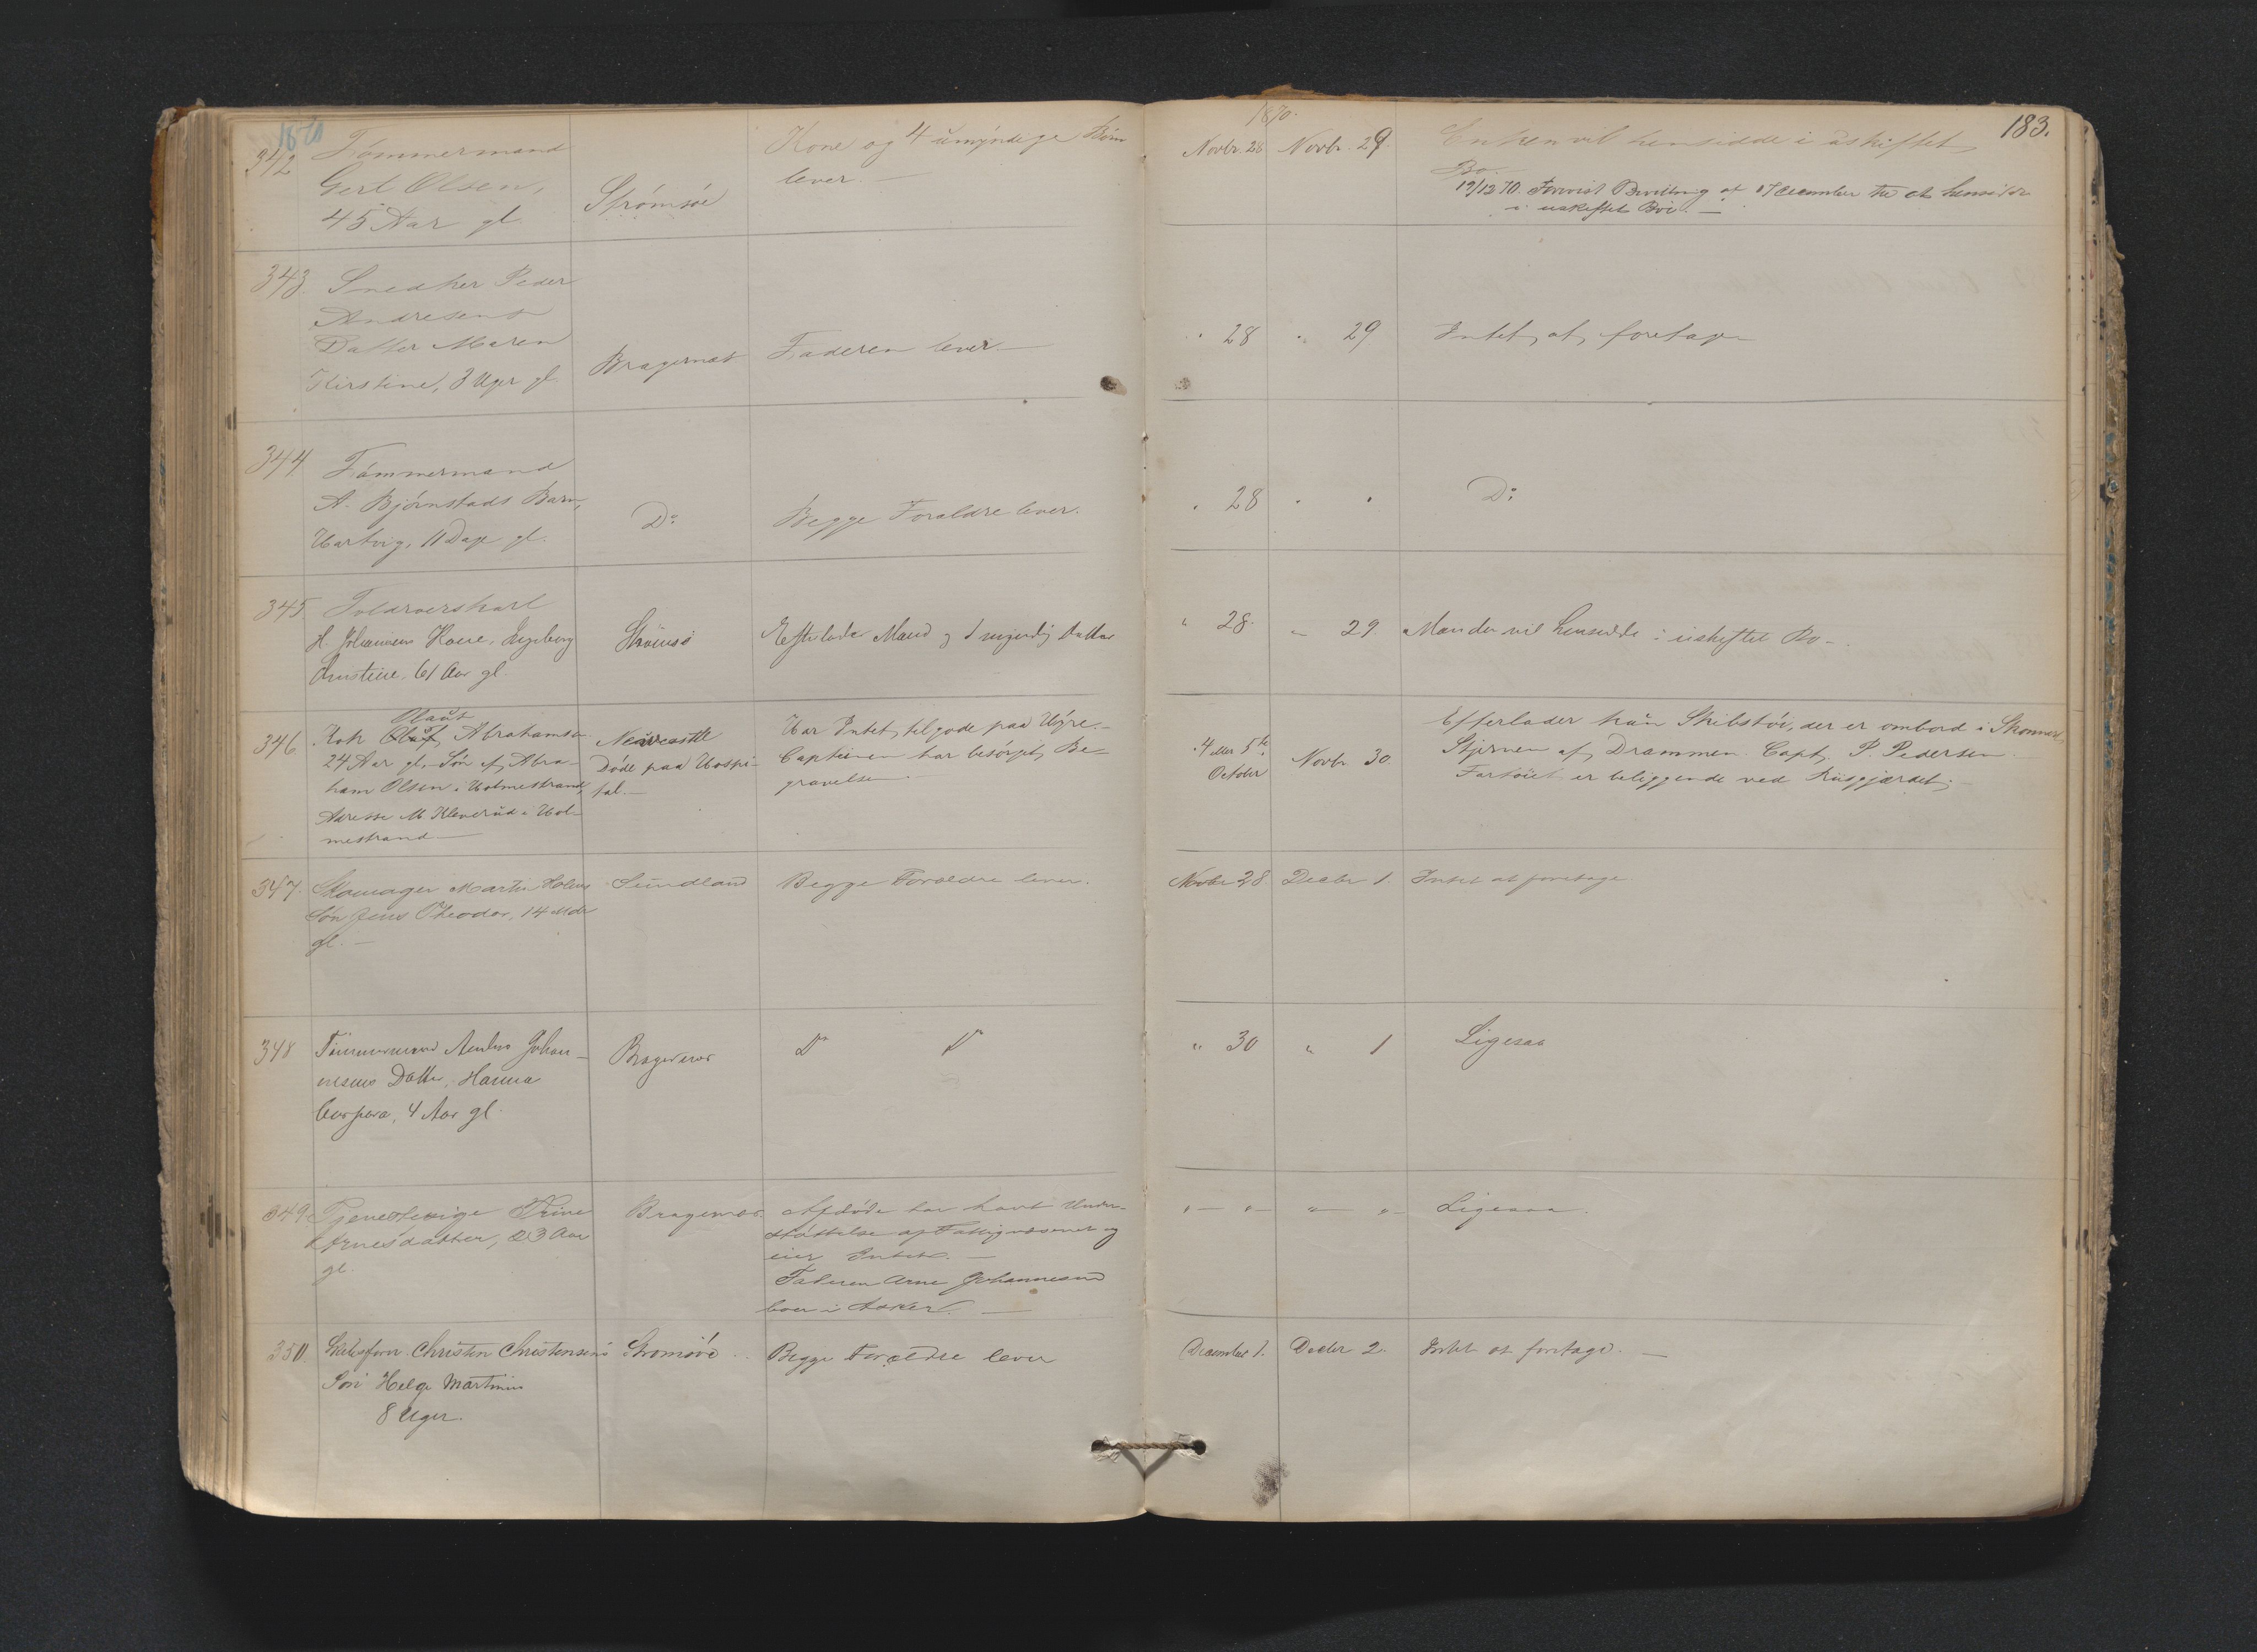 1870
342
Tömmermand
Gert Olsen,
45 Aar gl.
Strömsöe
Kone og 4 umyndige Börn
lever.
1870.
183.
Novbr. 28
Novbr. 29.
Enken vil hensidde i uskiftet
Bo.
19/12 70. Forevist Bevilling af December at hensidde
i uskiftet Bo. —
343.
Snedker Peder
Andresens
Datter Maren
Kirstine, 3 Uger gl.
Bragernæs
Faderen lever. —
" 28
" 29
Intet at foretage
344
Tömmermand
A. Björnstads Barn,
Hartvig, 11 Dage gl.
Do
Begge Foraldre lever.
" 28 " "
Do
345.
Toldroerskarl
H. Johannsens Kone, Ingeborg
Christine. 61 Aar gl.
Strömsö
Efterlader Mand og 1 myndig Datter
" 28.
" 29.
Manden vil hensidde i uskiftet Bo —
346
Olaus
Kok Oluf Abrahamsen
24 Aar gl. Sön af Abra-
ham Olsen i Holmestrand,
Adresse M. Kleverud i Hol-
mestrand —
Newcastle
Döde paa Hospi-
tal. —
Har Intet tilgode paa Hyre. —
Capteinen har besörget Be-
gravelsen.
4 eller 5te
October
Novbr. 30.
Efterlader kun Skibstöi, der er ombord i Skonnert
Stjernen af Drammen, Capt. P. Pedersen.
Fartöiet er beliggende ved Riisgjærdet. —
347.
Skomager Martin Holms
Sön Jens Theodor, 14 Mdr
gl. —
Sundland
Begge Forældre lever.
Novbr 28
Decbr 1.
Intet at foretage.
348
Tömmermand Anders Johan-
nesens Datter, Hanna
4 Aar gl.
Bragernes
Do Do
" 30
" 1
Ligesaa
349
Tjenestepige Trine
Arnesdatter, 23 Aar
gl.
Bragernæs.
Afdöde har havt Under-
støttelse af Fattigvæsenet og
eier Intet. —
Faderen Arne Johannesen
boer i Asker. —
" — " —
" — " —
Ligesaa.
350.
Skibsförer Christen Christensens
Sön Helge Martinius
8 Uger.
Strömsöe
Begge Forældre lever
December 1.
Decbr 2.
Intet at foretage. —